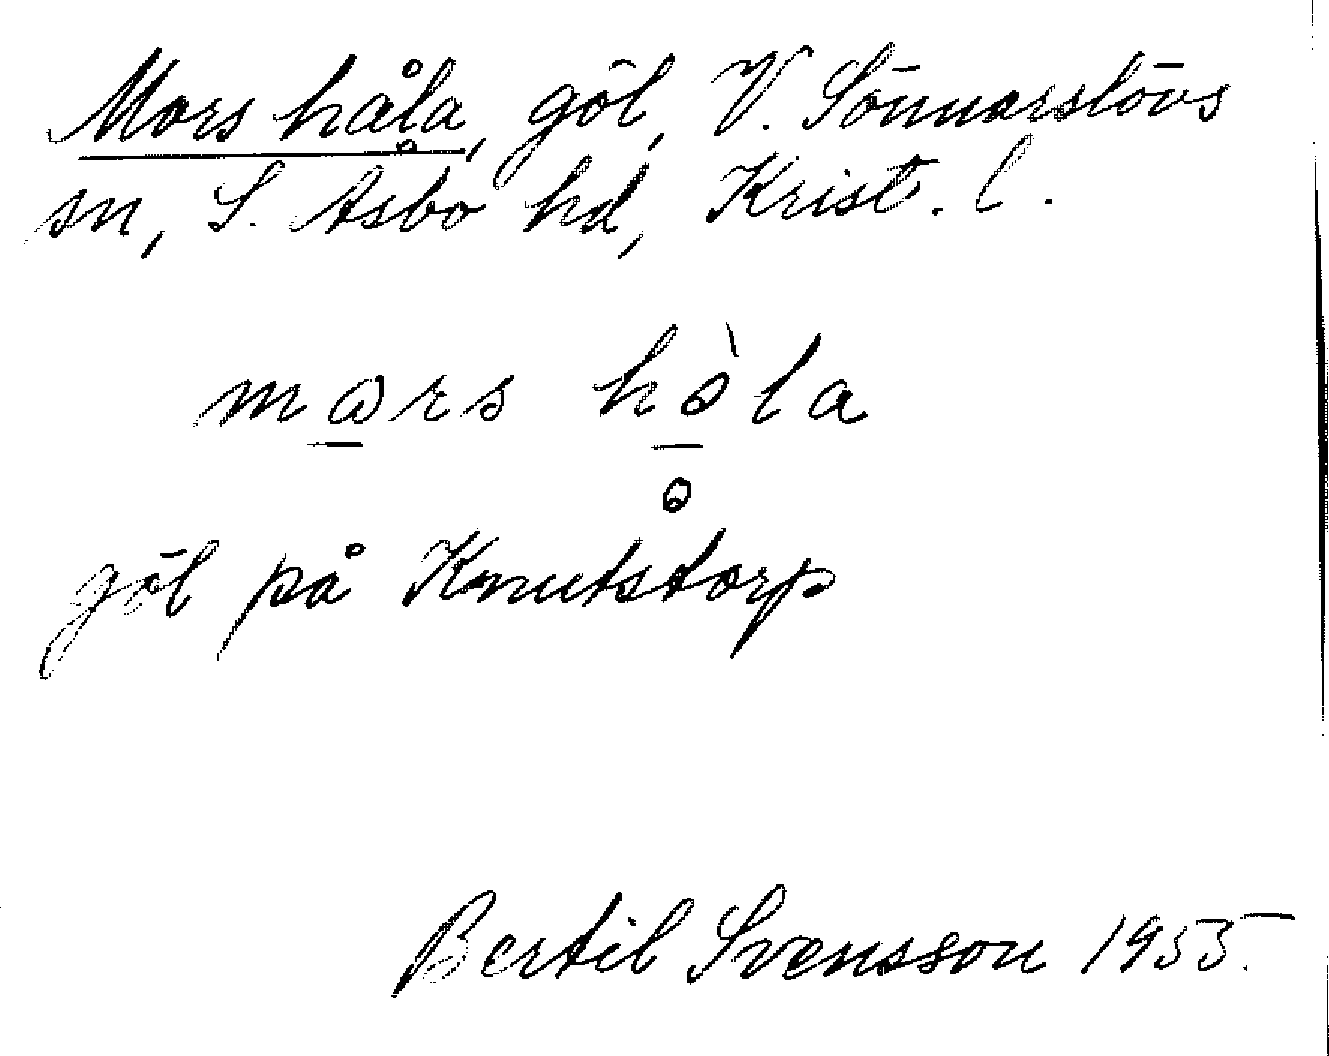 Mors håla, göl, V. Sönnarslövs
sn, S. Åsbo hd, Krist. l.
mars hòla
göl på Knutstorp
Bertil Svensson 1955.